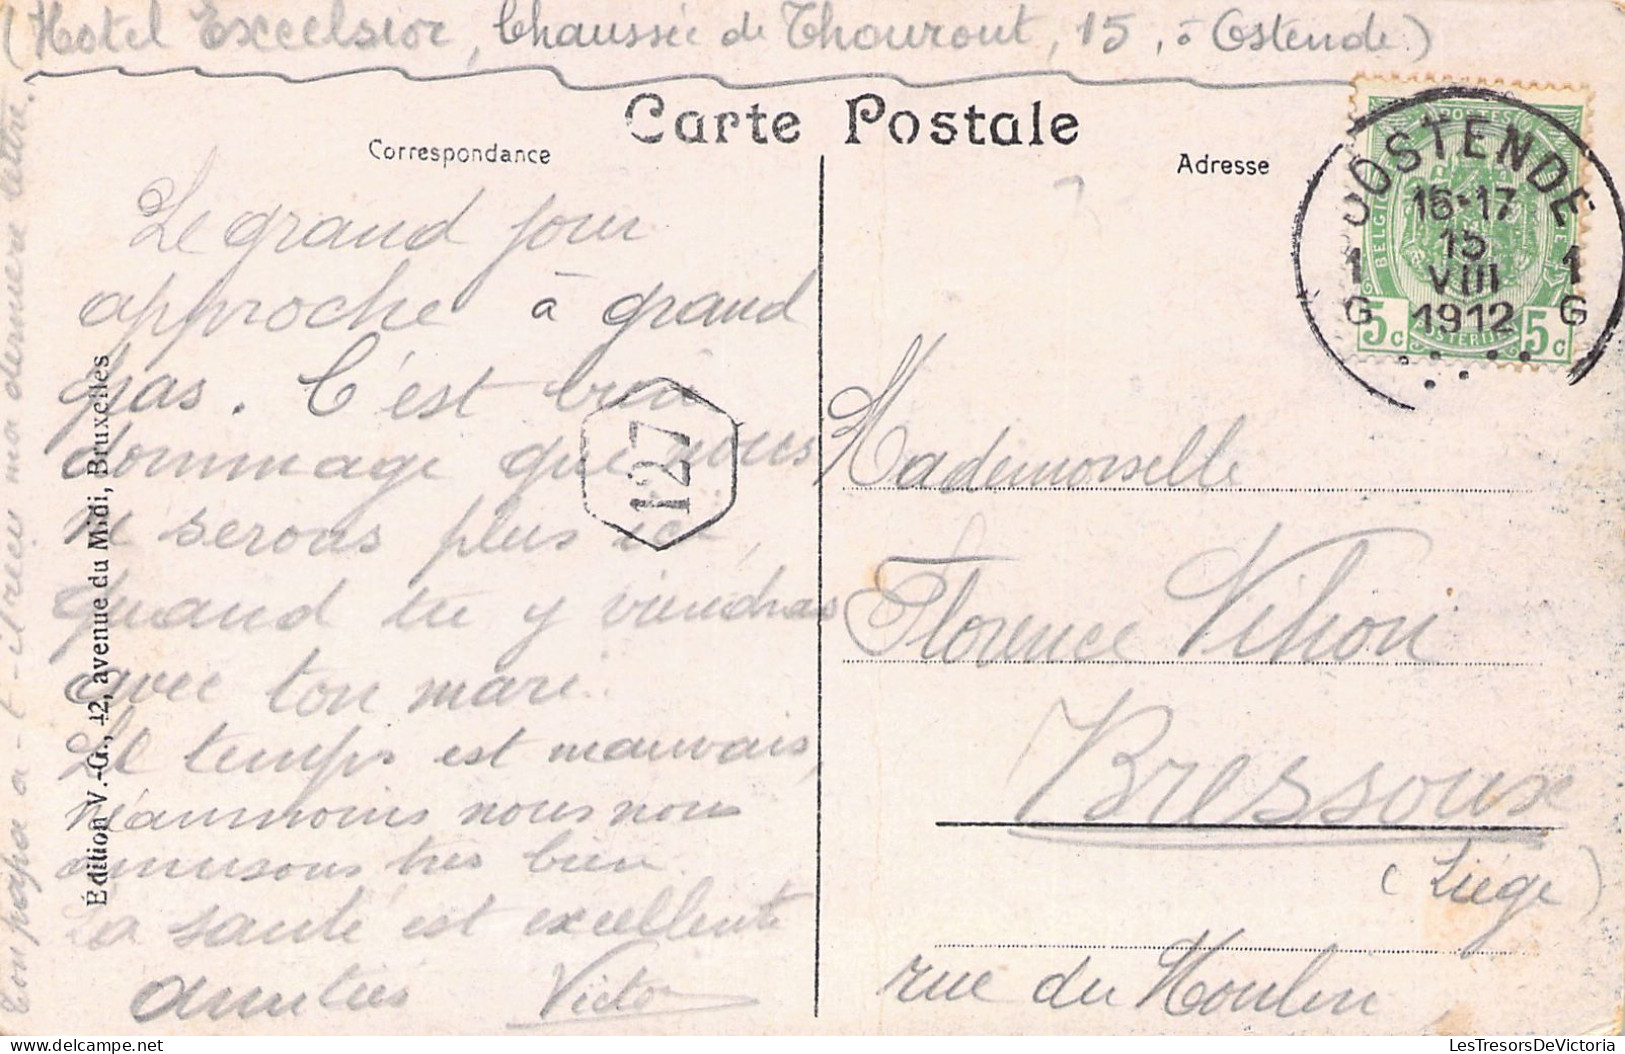 (Hotel Excelsior, Chaussée de Thourout, 15, à Ostende)
Carte Postale
Correspondance
Adresse
OOSTENDE
16-17
15
VIII
1912
1 1
G G
POSTES
BELGIQUE
POSTERIJEN
5c 5c
Le grand jour
approche à grand
pas. C'est bien
dommage que nous
ne serons plus ici,
quand tu y viendras
avec ton mari.
Le temps est mauvais,
néanmoins nous nous
amusons très bien.
La santé est excellente
Amitiés Victor
Ton papa a-t-il reçu ma dernière lettre.
127
Édition V.-G., 42, avenue du Midi, Bruxelles
Mademoiselle
Florence
Bressoux
(Liége)
rue du Moulin
LesTresorsDeVictoria
LesTresorsDeVictoria.com